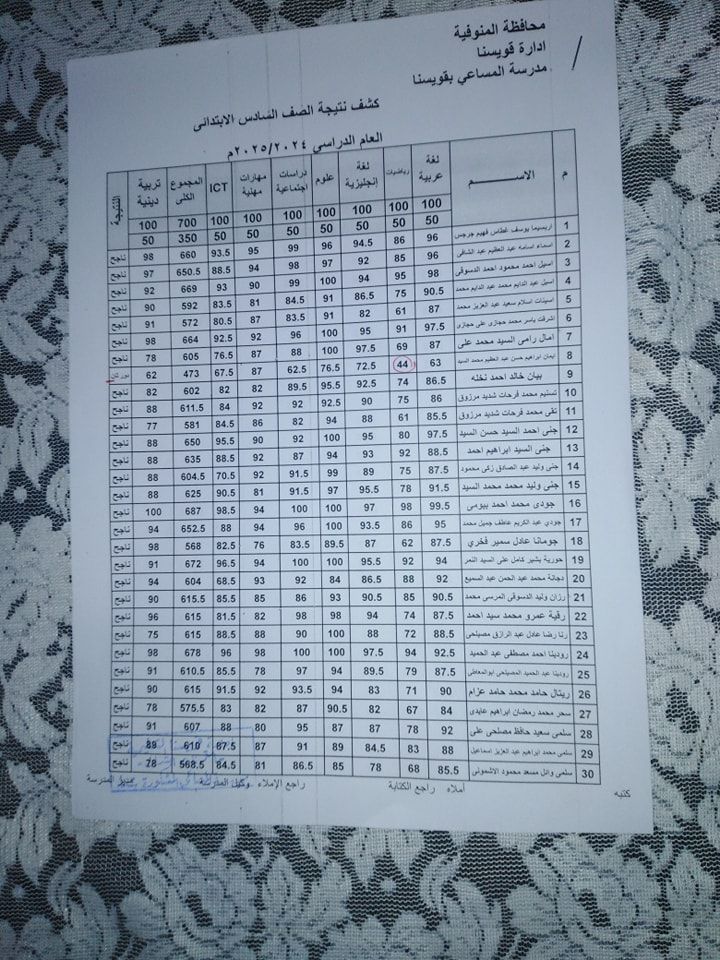 محافظة المنوفية
ادارة قويسنا
مدرسة المساعي بقويسنا
كشف نتيجة الصف السادس الابتدائى
العام الدراسي ٢٠٢٥/٢٠٢٤م
م الاســـــــم لغة عربية رياضيات لغة إنجليزية علوم دراسات اجتماعية مهارات مهنية ICT المجموع الكلى تربية دينية النتيجة
100 100 100 100 100 100 100 700 100
50 50 50 50 50 50 50 350 50
1 اريسيما يوسف غطاس فهيم جرجس 96 86 94.5 96 99 95 93.5 660 98 ناجح
2 اسماء اسامه عبد العظيم عبد الشافى 96 85 92 97 98 94 88.5 650.5 97 ناجح
3 اسيل احمد محمود احمد الدسوقى 98 95 94 100 99 90 93 669 92 ناجح
4 اسيل عبد الدايم محمد عبد الدايم محمد 90.5 75 86.5 91 84.5 81 83.5 592 90 ناجح
5 اسينات اسلام سعيد عبد العزيز محمد 87 61 82 91 83.5 87 80.5 572 91 ناجح
6 اشرقت ياسر محمد حجازى على حجازى 97.5 91 95 100 96 92 92.5 664 98 ناجح
7 امال رامى السيد محمد على 87 69 97.5 100 88 87 76.5 605 78 ناجح
8 ايمان ابراهيم حسن عبد العظيم محمد السيد 63 44 72.5 76.5 62.5 87 67.5 473 62 دور ثان
9 بيان خالد احمد نخله 86.5 74 92.5 95.5 89.5 82 82 602 82 ناجح
10 تسنيم محمد فرحات شديد مرزوق 86 75 90 92.5 92 92 84 611.5 88 ناجح
11 تقى محمد فرحات شديد مرزوق 85.5 61 88 94 82 86 84.5 581 77 ناجح
12 جنى احمد السيد حسن السيد 97.5 80 95 100 92 90 95.5 650 88 ناجح
13 جنى السيد ابراهيم احمد 88.5 92 93 94 87 92 88.5 635 88 ناجح
14 جنى وليد عبد الصادق زكى محمود 87.5 75 89 99 91.5 92 70.5 604.5 88 ناجح
15 جنى وليد محمد محمد السيد 91.5 78 95.5 97 91.5 81 90.5 625 88 ناجح
16 جودى محمد احمد بيومى 99.5 98 97 100 100 94 98.5 687 100 ناجح
17 جودي عبد الكريم عاطف جميل محمد 95 86 93.5 100 96 94 88 652.5 94 ناجح
18 جومانا عادل سمير فخري 87.5 62 87 89.5 83.5 76 82.5 568 98 ناجح
19 حورية بشير كامل على السيد النمر 94 92 95.5 100 100 94 96.5 672 91 ناجح
20 دجانة محمد عبد الحن عبد السميع 92 88 86.5 84 92 93 68.5 604 94 ناجح
21 رزان وليد الدسوقى المرسى محمد 90.5 85 90.5 93 86 85 85.5 615.5 90 ناجح
22 رقية عمرو محمد سيد احمد 87.5 74 94 98 98 82 81.5 615 96 ناجح
23 رنا رضا عادل عبد الرازق مصيلحى 88.5 72 88 100 90 88 88.5 615 75 ناجح
24 رودينا احمد مصطفى عبد الحميد 92.5 94 97.5 100 100 98 96 678 98 ناجح
25 رودينا عبد الحميد المصيلحى ابوالمعاطى 87.5 79 89.5 94 97 78 85.5 610.5 91 ناجح
26 ريتال حامد محمد حامد عزام 90 71 83 94 93.5 92 91.5 615 90 ناجح
27 سحر محمد رمضان ابراهيم عابدى 84 67 82 90.5 87 82 83 575.5 78 ناجح
28 سلمى سعيد حافظ مصلحى على 92 78 87 87 95 80 88 607 91 ناجح
29 سلمى محمد ابراهيم عبد العزيز اسماعيل 88 83 84.5 89 91 87 87.5 610 89 ناجح
30 سلمى وائل مسعد محمود الاشمونى 85.5 68 78 85 86.5 81 84.5 568.5 78 ناجح
كتبه أملاه راجع الكتابة راجع الإملاء وكيل المدرسة مدير المدرسة